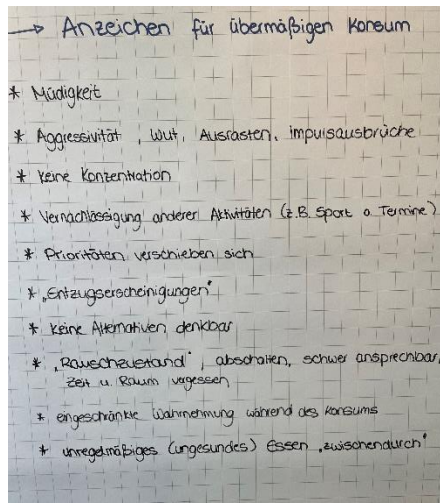 → Anzeichen für übermäßigen Konsum
* Müdigkeit
* Aggressivität, Wut, Ausrasten, impulsausbrüche
* Keine Konzentration
* Vernachlässigung anderer Aktivitäten (z.B. Sport o. Termine)
* Prioritäten verschieben sich
* „Entzugserscheinigungen“
* Keine Alternativen denkbar
* „Rauschzustand“, abschalten, schwer ansprechbar,
Zeit u. Raum vergessen
* eingeschränkte Wahrnehmung während des Konsums
* unregelmäßiges (ungesundes) Essen „zwischendurch“